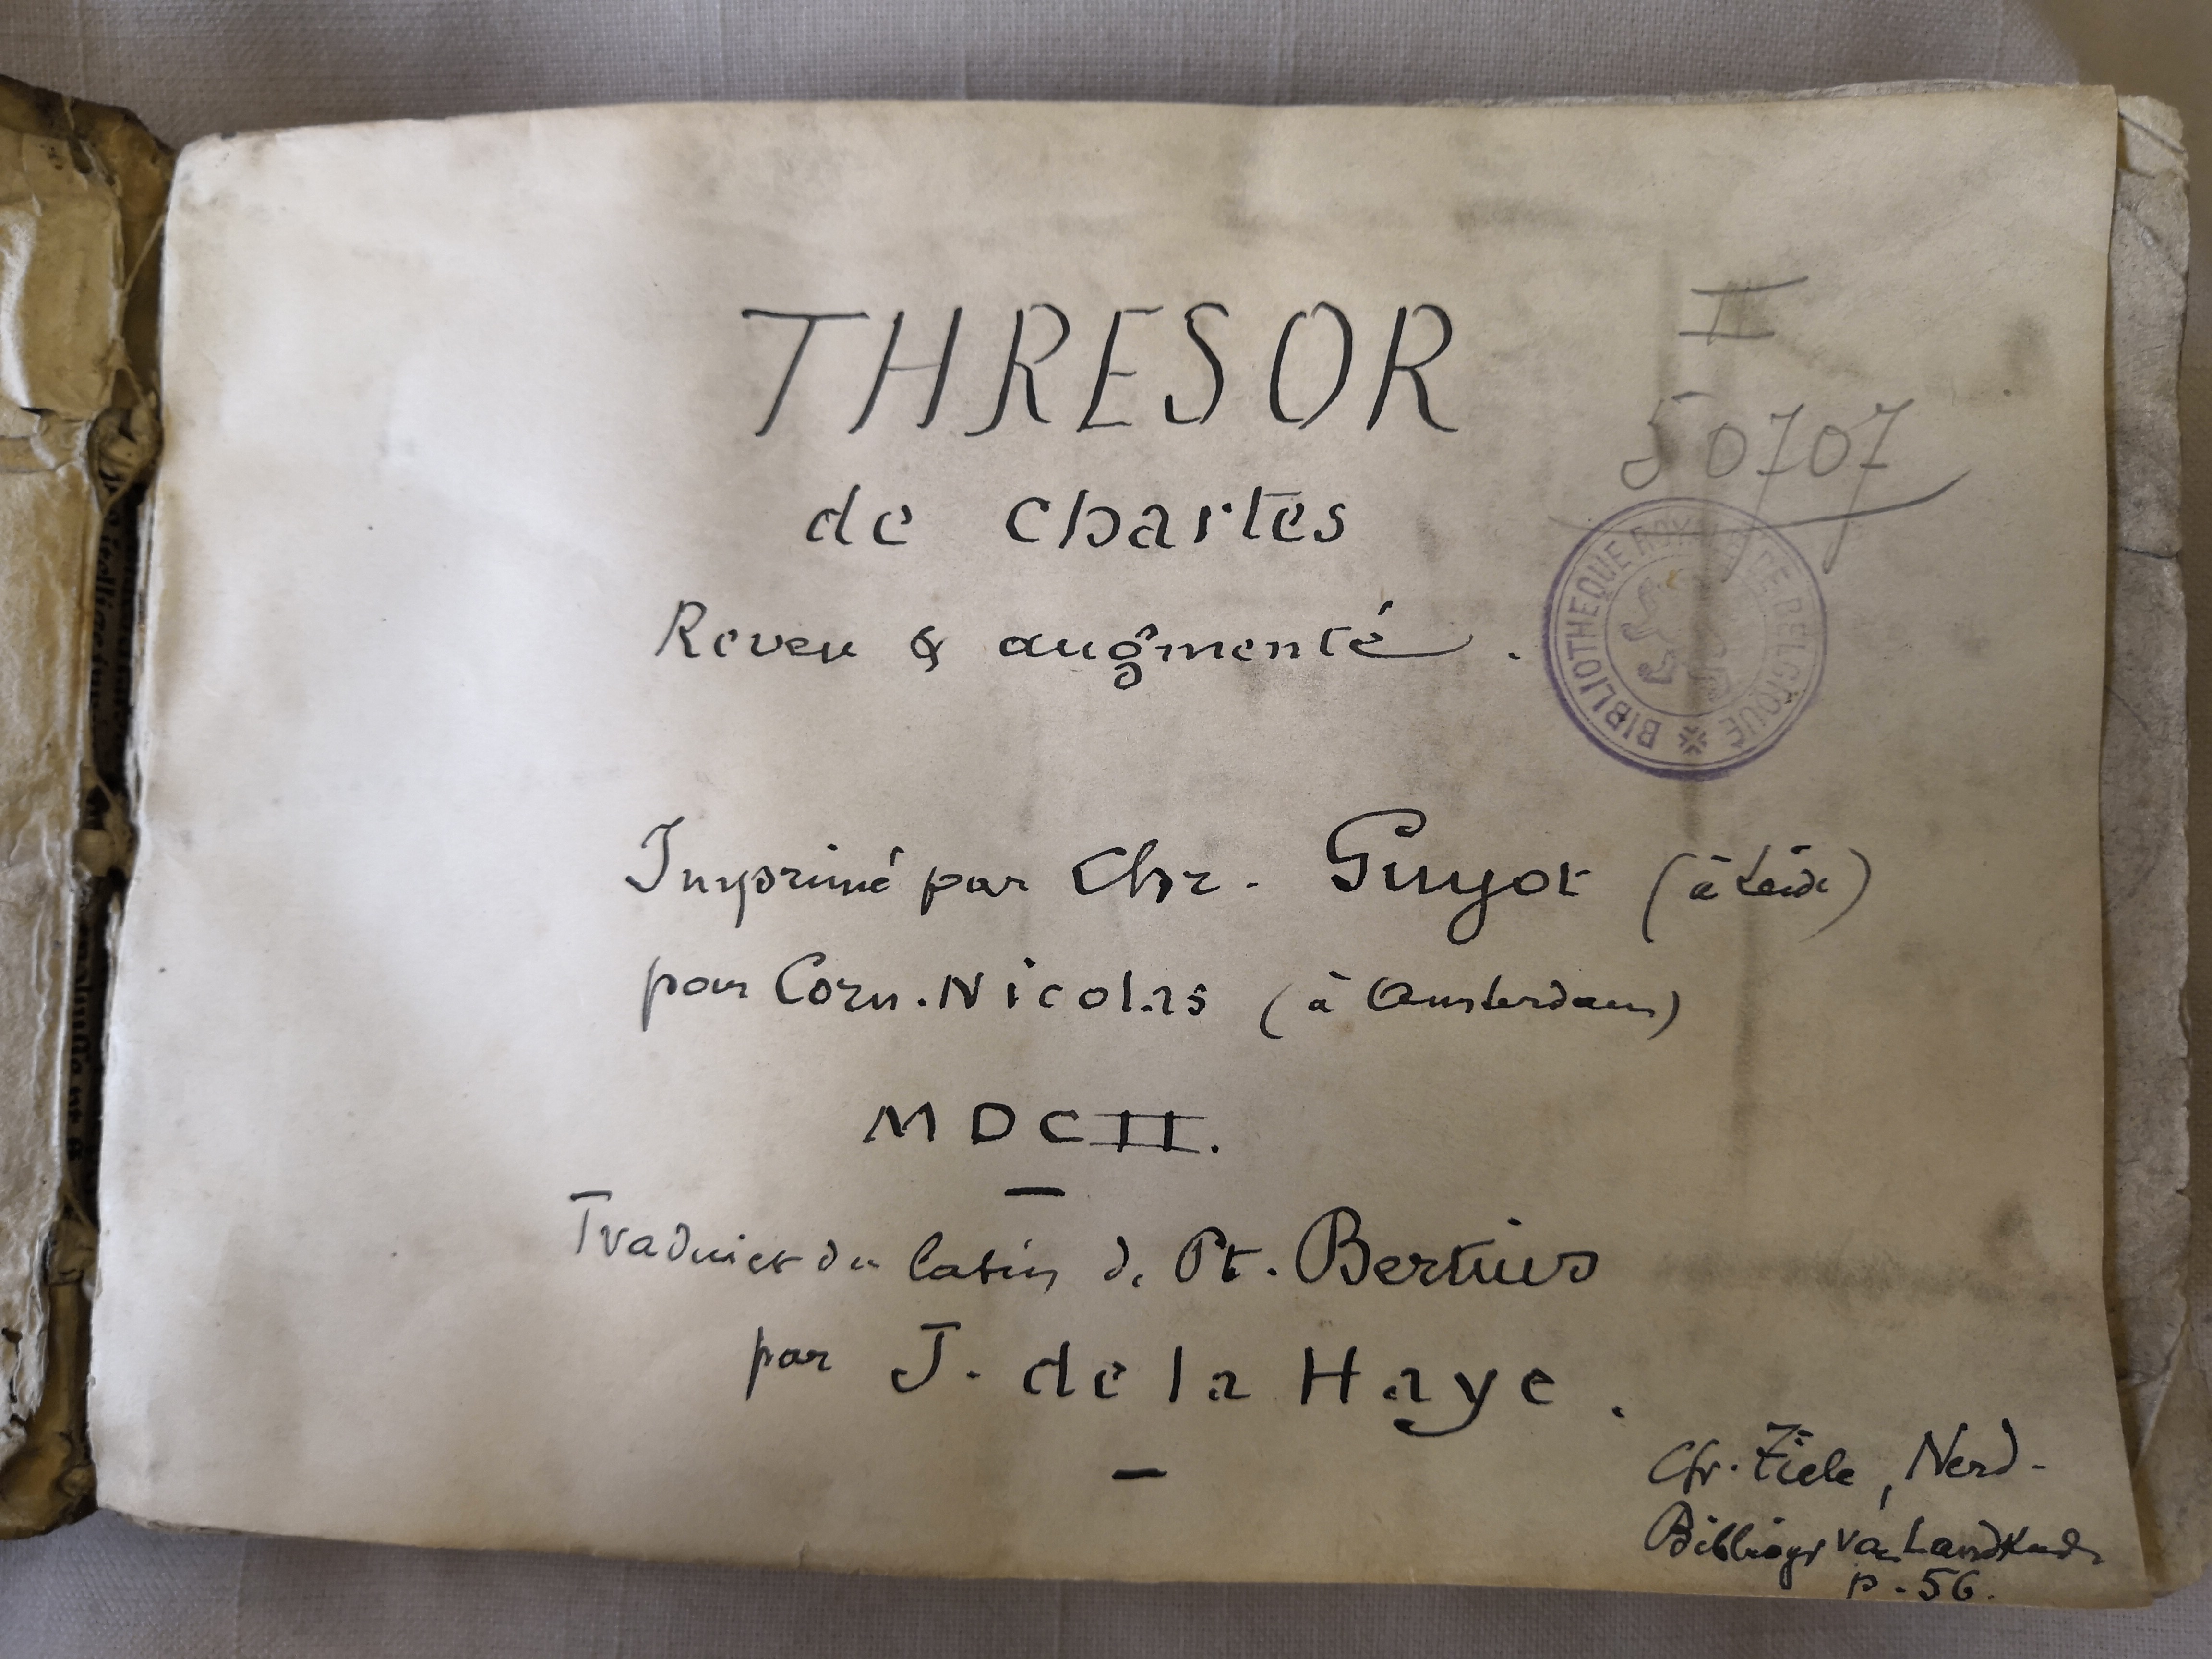 THRESOR
de chartes
Reveu & augmenté.
II
50707
BIBLIOTHEQUE ROYALE DE BELGIQUE
Imprimé par Chr. Guyot (à Leide)
pour Corn. Nicolas (à Amsterdam)
MDCII.
Traduict du latin de Pt. Bertius
par J. de la Haye.
Cfr. Tiele, Nerd-
Bibliogr van Landkunde
p. 56.